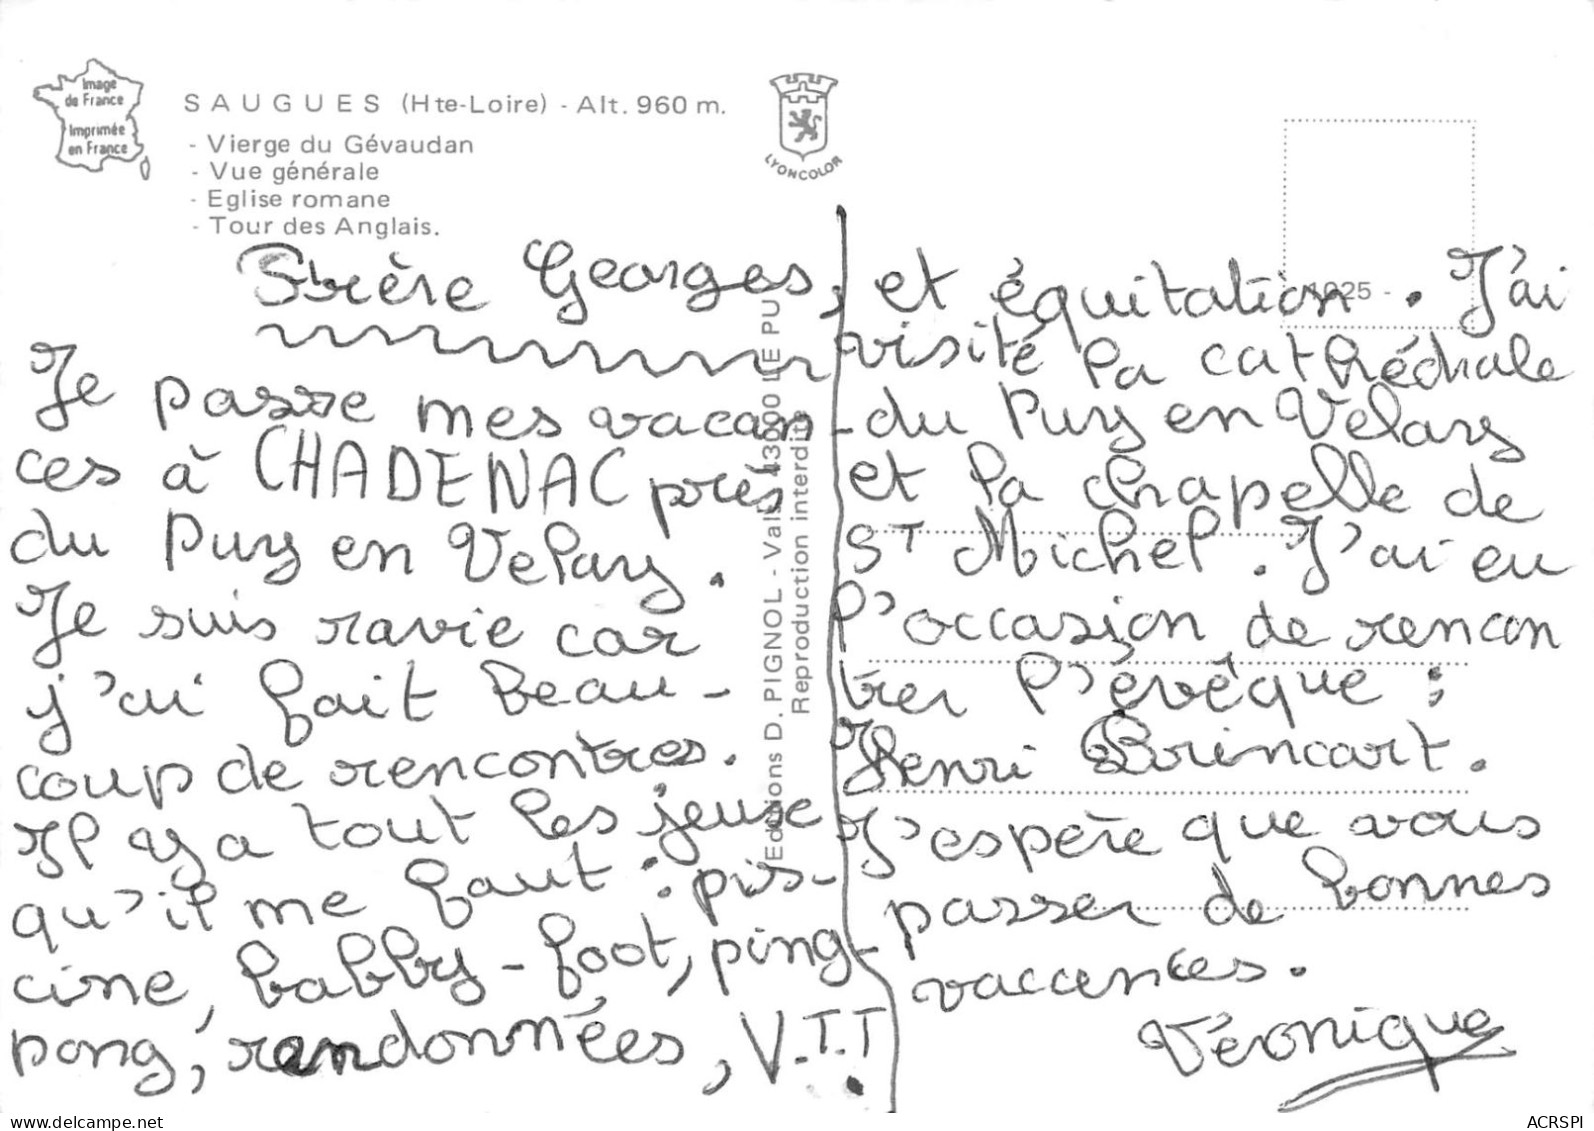 Image
de France
Imprimée
en France
SAUGUES (Hte-Loire) - Alt. 960 m.
- Vierge du Gévaudan
- Vue générale
- Eglise romane
- Tour des Anglais.
LYONCOLOR
Georges,
Je passe mes vacan-
ces à CHADENAC près
du Puy en Velay.
Je suis ravie car
j'ai fait beau-
coup de rencontres.
Il y a tout les jeuse
qu'il me faut : pis-
cine, babby-foot, ping-
pong, randonnées, V.T.T
Editions D. PIGNOL - Vals - 43000 LE PU
Reproduction interdite
1025 -
et équitation. J'ai
visité la cathédrale
du Puy en Velay
et la chapelle de
ST Michel. J'ai eu
l'occasion de rencon
trer l'évêque :
Henri Brincart.
J'espère que vous
passer de bonnes
vacances.
Véronique
ACRSPI